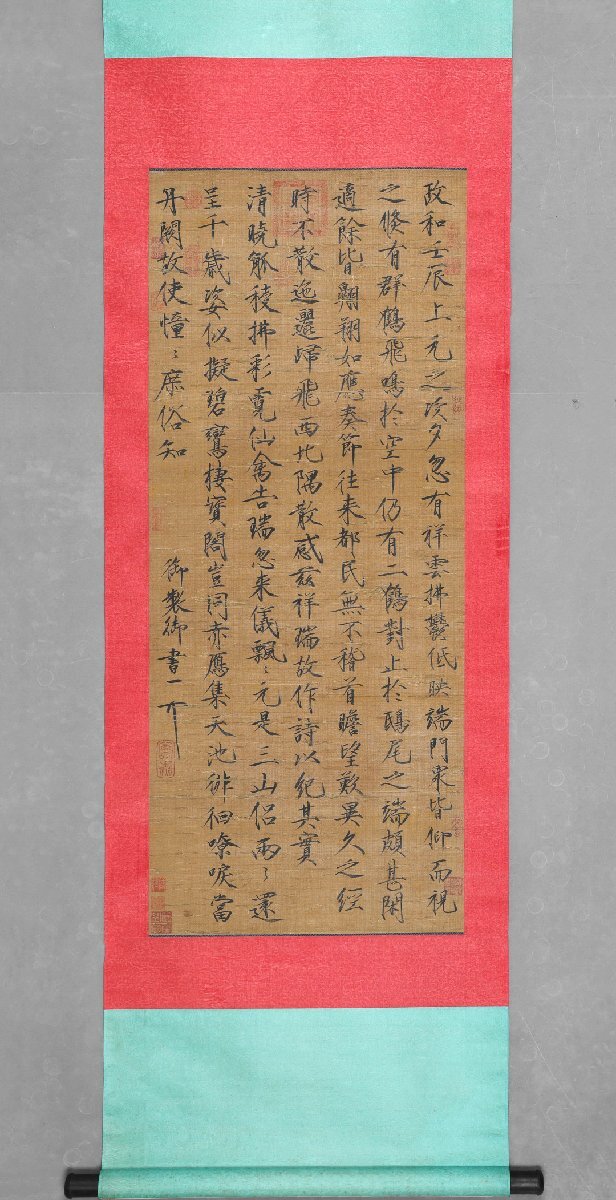 政和壬辰上元之次夕忽有祥雲拂鬱低映端門衆皆仰而視
之倏有群鶴飛鳴於空中仍有二鶴對止於鴟尾之端頗甚閑
適餘皆翱翔如應奏節往来都民無不稽首瞻望歎異久之經
時不散迤邐歸飛西北隅散感茲祥瑞故作詩以紀其實
清曉觚稜拂彩霓仙禽告瑞忽来儀飄〻元是三山侣兩〻還
呈千歲姿似擬碧鸞棲寳閣豈同赤鴈集天池徘徊嘹唳當
丹闕故使憧〻庶俗知
御製御書